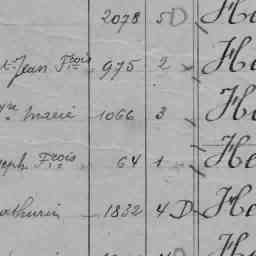 2078 5 D He
t Jean Frois 975 2 He
Marie 1066 3 He
eph Frois 64 1 He
athurin 1832 4 D He